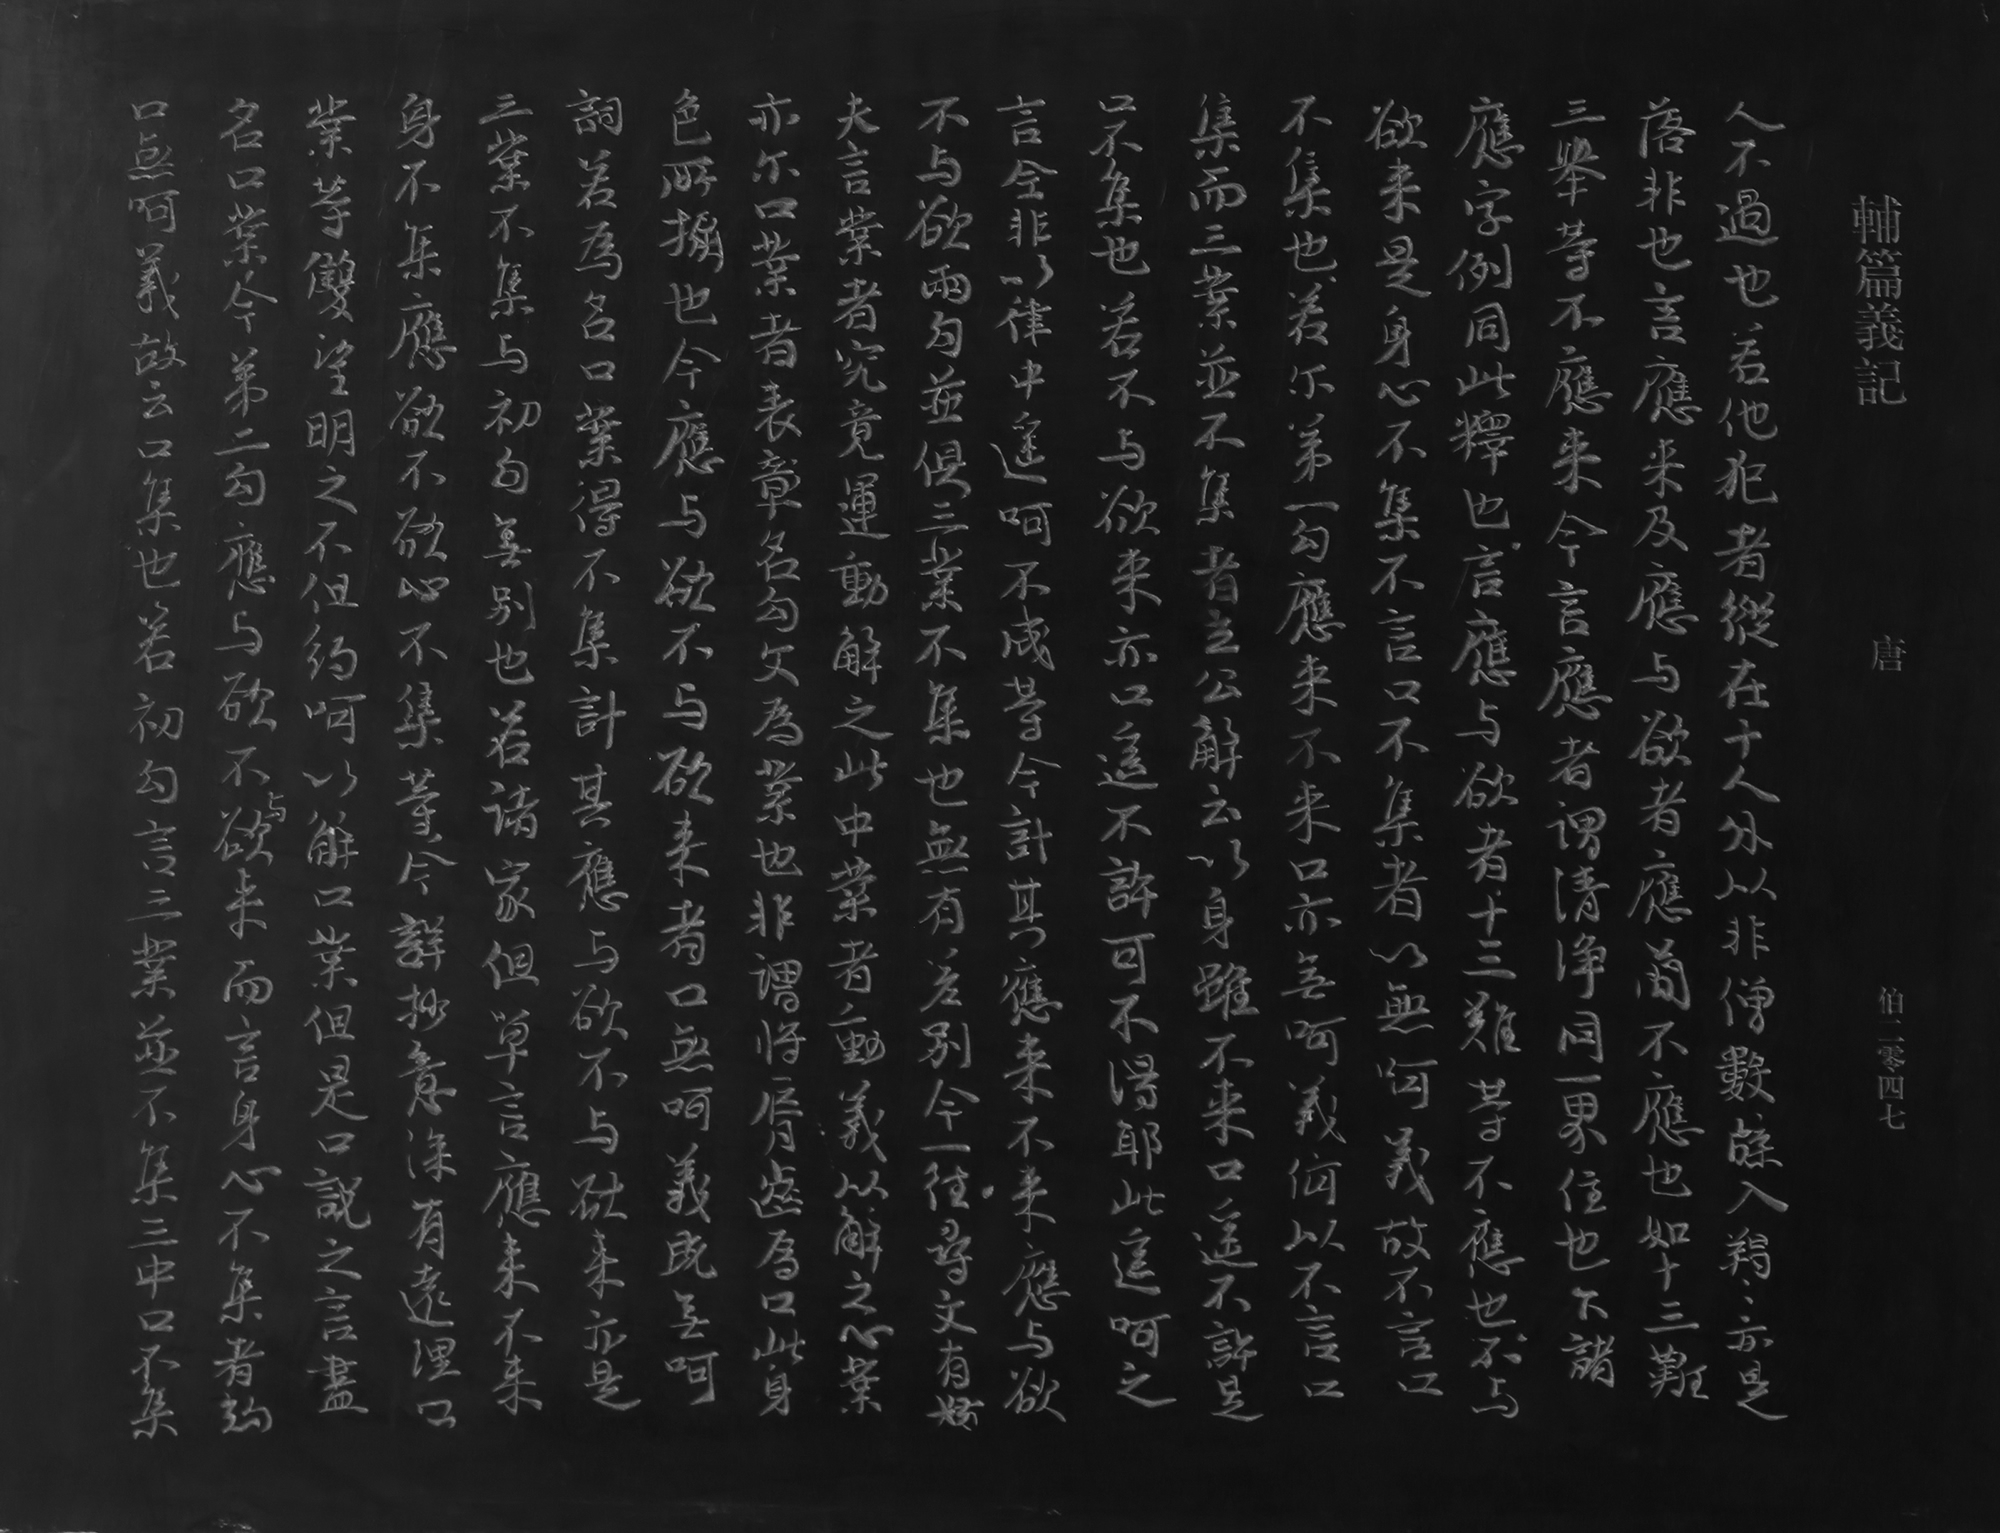 輔篇義記 唐 伯二零四七
人不過也若他犯者縱在十人外以非僧數餘入羯〻亦是
落非也言應来及應与欲者應簡不應也如十三難
三舉等不應来今言應者謂清淨同一界住也下諸
應字例同此釋也言應与欲者十三難等不應也不与
欲来是身心不集不言口不集者以無呵義故不言口
不集也若尓第一句應来不来口亦无呵義何以不言口
集而三業並不集者立公解云以身雖不来口遥不許是
口不集也若不与欲来亦口遥不許可不得耶此遥呵之
言全非以律中遥呵不成等今計其應来不来應与欲
不与欲兩句並俱三業不集也無有差別今一往尋文有
夫言業者究竟運動解之此中業者動義以解之心業
亦尓口業者表章名句文為業也非謂将脣齒為口此身
色所攝也今應与欲不与欲来者口無呵義既无呵
詞若為名口業得不集計其應与欲不与欲来亦是
三業不集与初句无別也若諸家但草言應来不来
身不集應欲不欲心不集等今詳抄意深有遠理口
業等雙望明之不但約呵以解口業但是口説之言盡
名口業今第二句應与欲不与欲来而言身心不集者約
口無呵義故云口集也若初句言三業並不集三中口不集